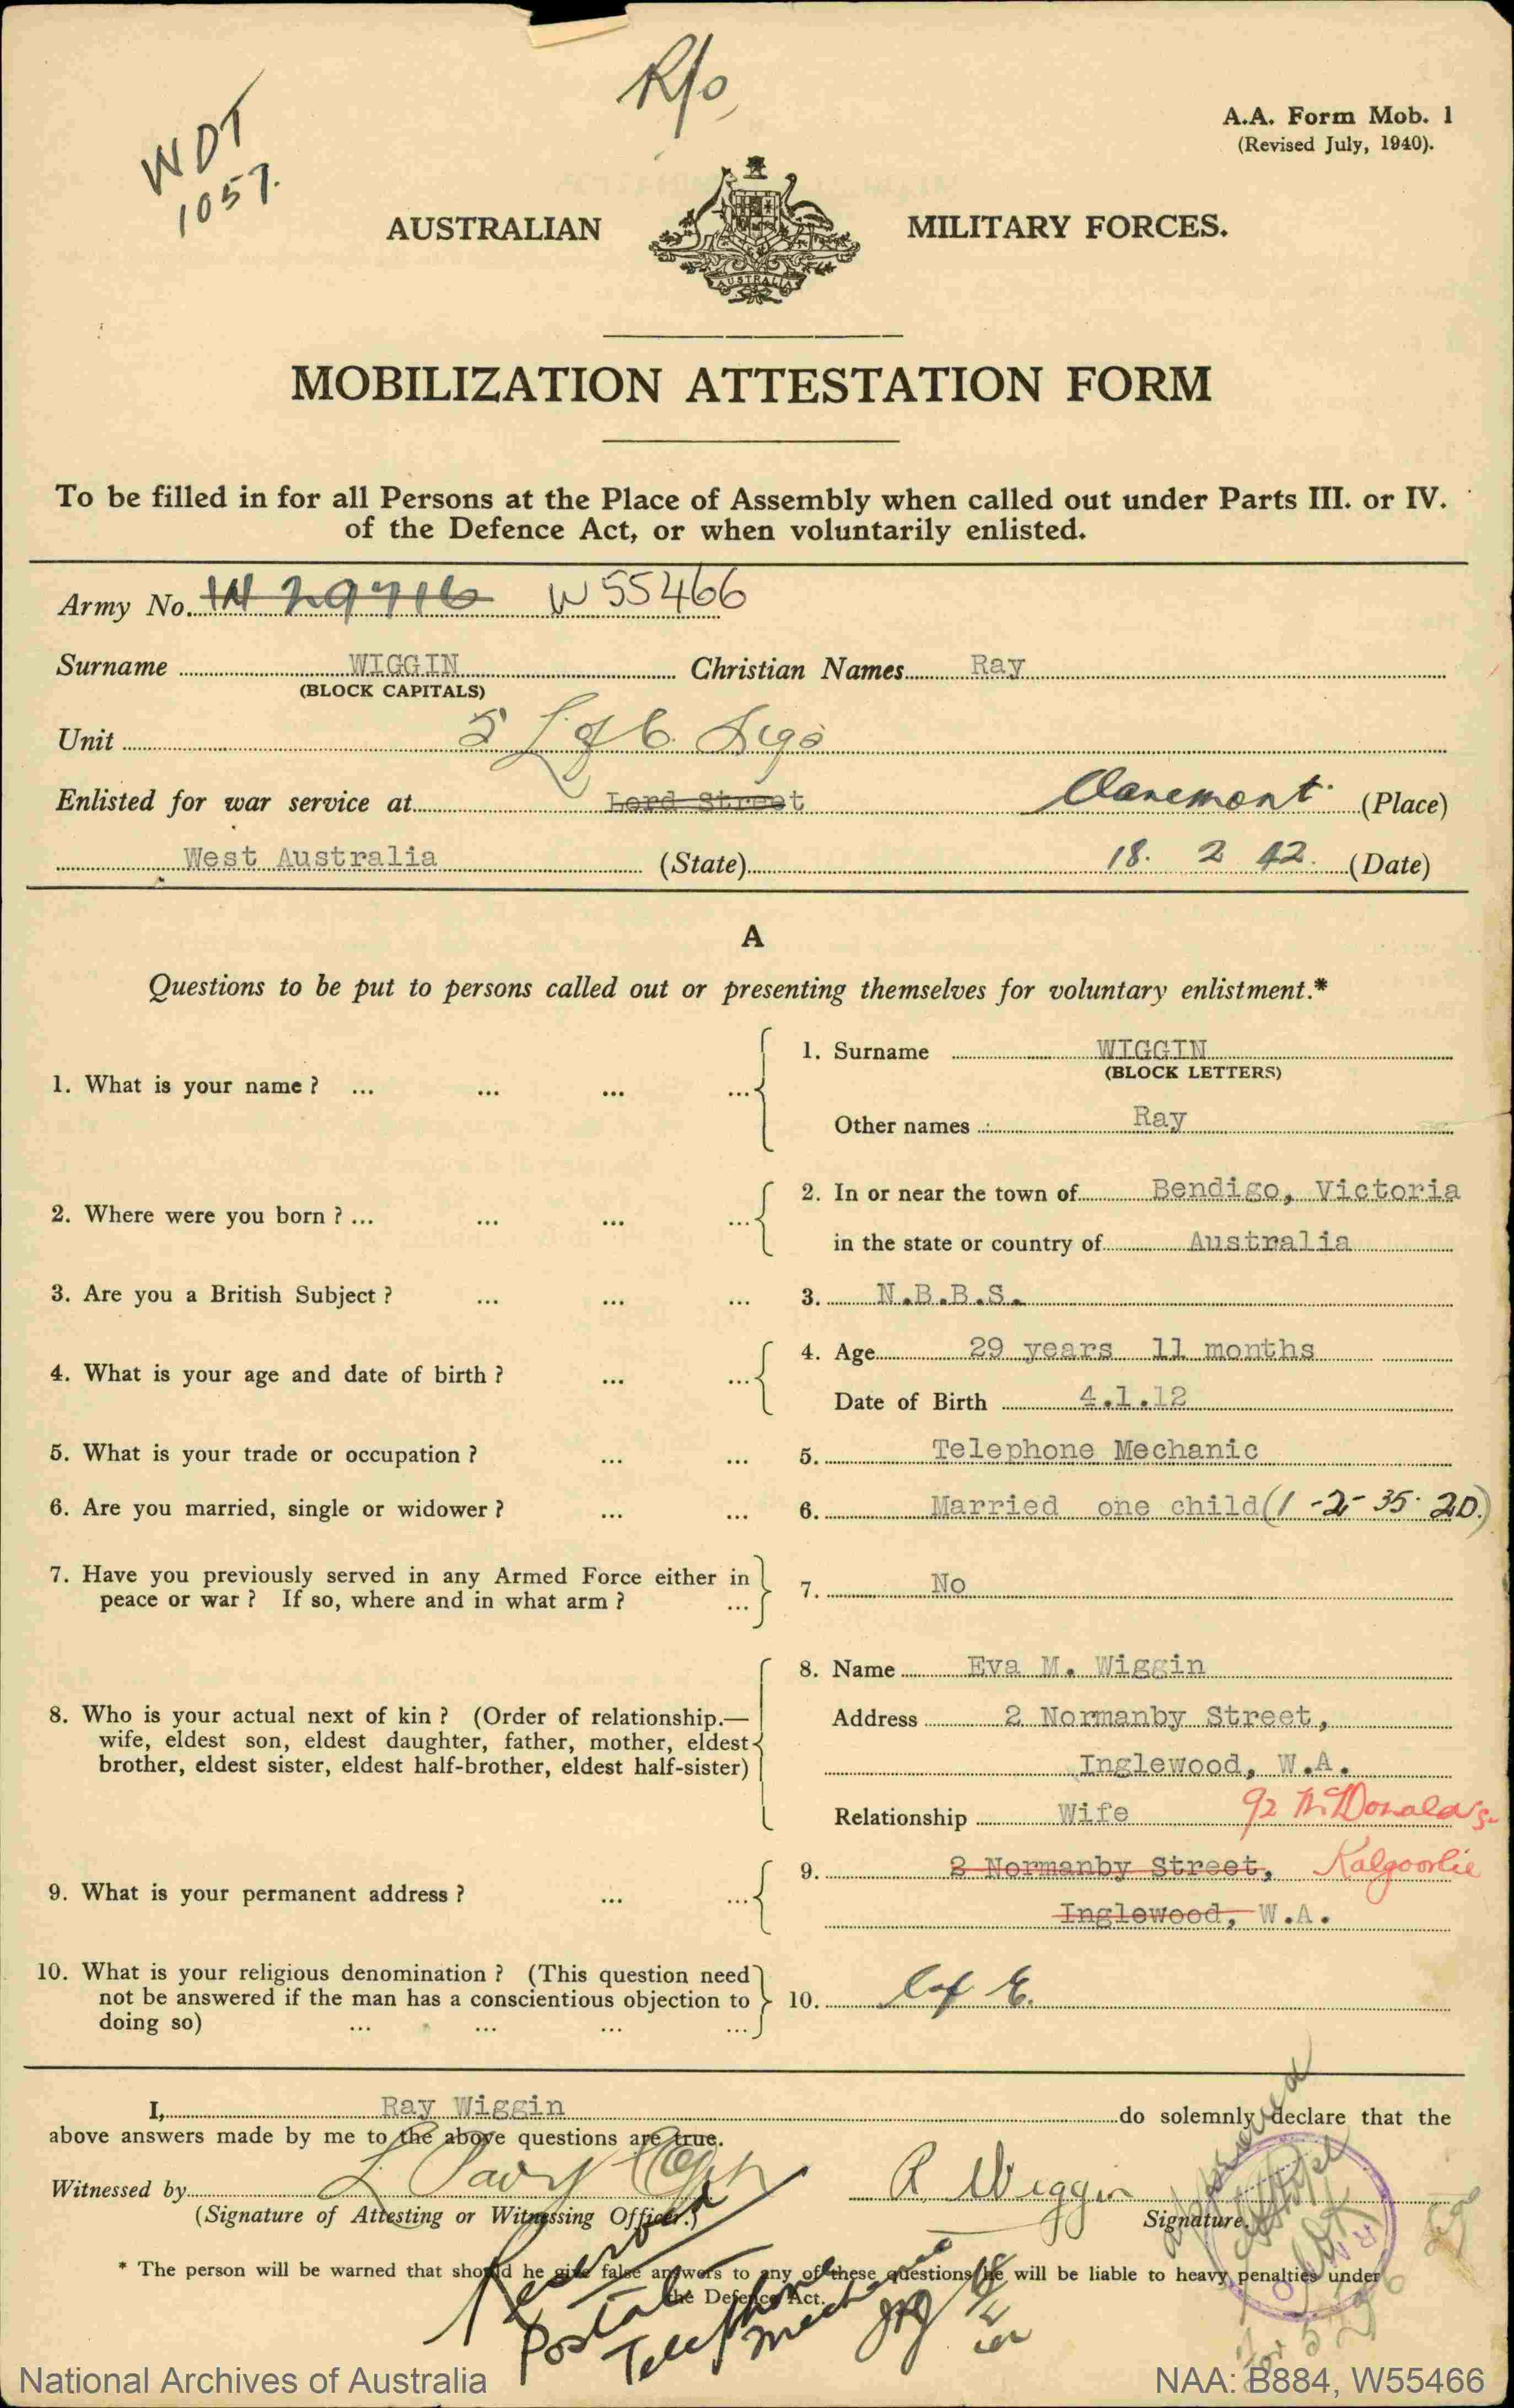 R/o
WDT
1057.
A.A. Form Mob. 1
(Revised July, 1940).
AUSTRALIAN MILITARY FORCES.
AUSTRALIA
MOBILIZATION ATTESTATION FORM
To be filled in for all Persons at the Place of Assembly when called out under Parts III. or IV.
of the Defence Act, or when voluntarily enlisted.
Army No. W 29716 W 55466
Surname WIGGIN Christian Names Ray
(BLOCK CAPITALS)
Unit 5 L of C Sigs
Enlisted for war service at Lord Street Claremont (Place)
West Australia (State) 18. 2 42. (Date)
A
Questions to be put to persons called out or presenting themselves for voluntary enlistment.*
1. What is your name? ... ... ... ... 1. Surname WIGGIN
(BLOCK LETTERS)
Other names Ray
2. Where were you born? ... ... ... ... 2. In or near the town of Bendigo, Victoria
in the state or country of Australia
3. Are you a British Subject? ... ... ... 3. N.B.B.S.
4. What is your age and date of birth? ... ... 4. Age 29 years 11 months
Date of Birth 4.1.12
5. What is your trade or occupation? ... ... 5. Telephone Mechanic
6. Are you married, single or widower? ... ... 6. Married one child (1-2-35. 20.)
7. Have you previously served in any Armed Force either in
peace or war? If so, where and in what arm? ... 7. No
8. Name Eva M. Wiggin
8. Who is your actual next of kin? (Order of relationship.—
wife, eldest son, eldest daughter, father, mother, eldest
brother, eldest sister, eldest half-brother, eldest half-sister)
Address 2 Normanby Street,
Inglewood, W.A.
Relationship Wife 92 McDonald S
9. What is your permanent address? ... ... 9. 2 Normanby Street, Kalgoorlie
Inglewood, W.A.
10. What is your religious denomination? (This question need
not be answered if the man has a conscientious objection to
doing so) ... ... ... ... 10. C of E.
I, Ray Wiggin do solemnly declare that the
above answers made by me to the above questions are true.
Witnessed by R. Wiggin
(Signature of Attesting or Witnessing Officer.) Signature.
* The person will be warned that should he give false answers to any of these questions he will be liable to heavy penalties under
the Defence Act.
Postal
Telephone
Mechanic
National Archives of Australia NAA: B884, W55466